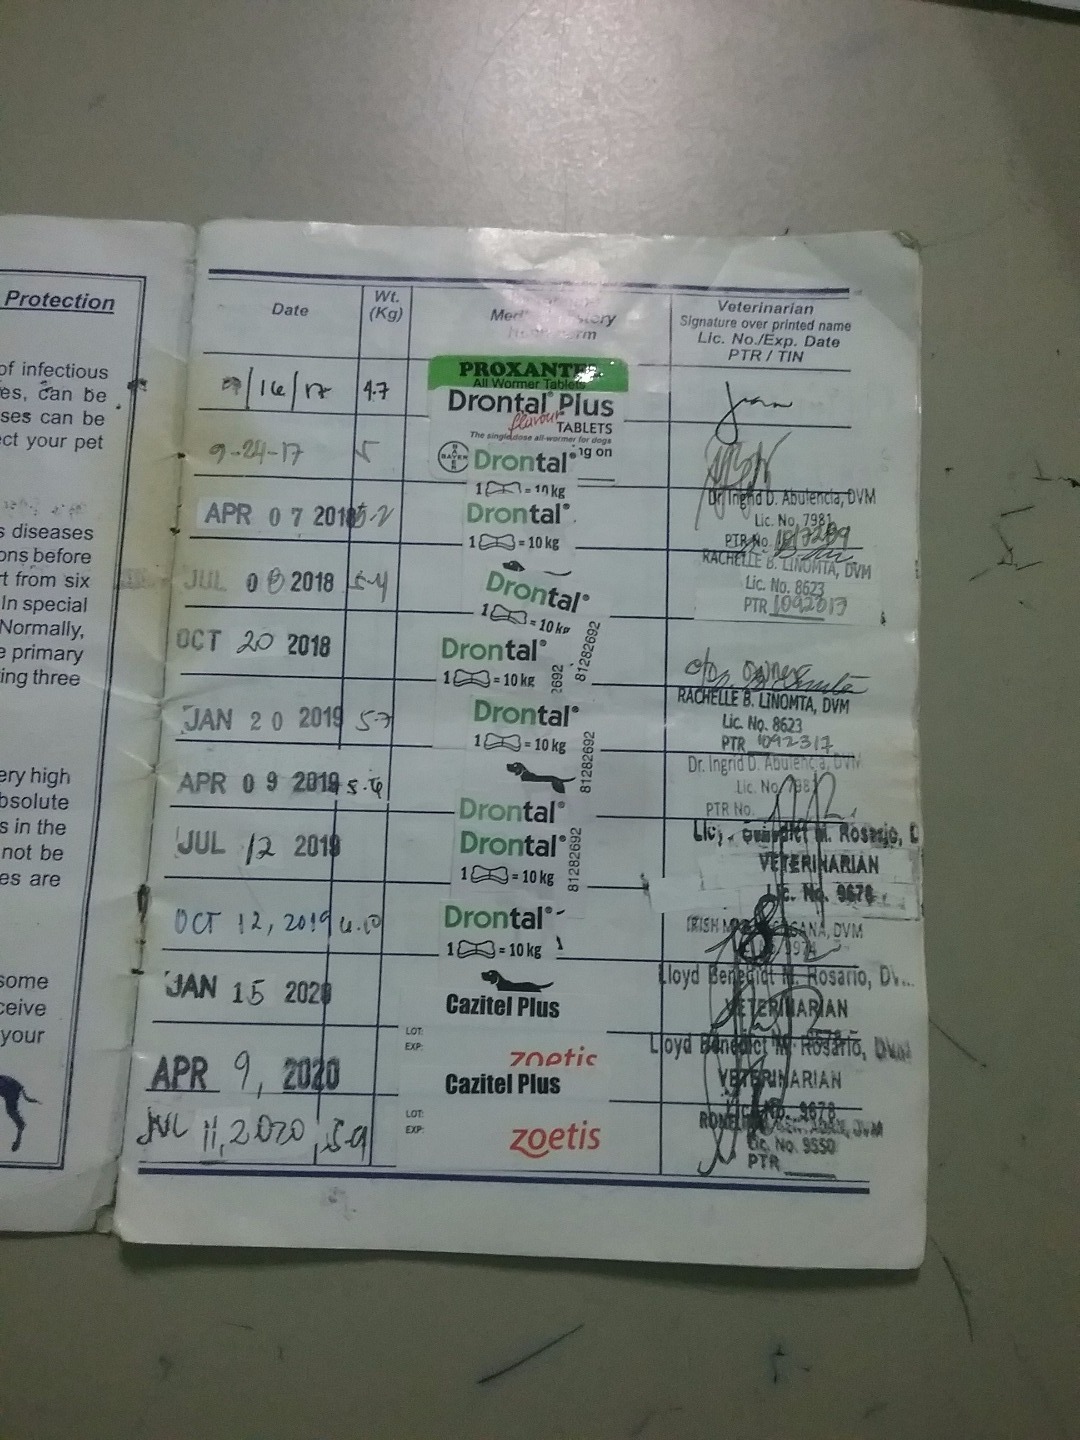 Protection
of infectious
es, can be
ses can be
ct your pet
s diseases
ons before
rt from six
In special
Normally,
e primary
ing three
ery high
bsolute
s in the
not be
es are
some
ceive
your
Date
Wt.
(Kg)
Veterinarian
Signature over printed name
Lic. No./Exp. Date
PTR / TIN
/16/17 4.7
PROXANTEL
All Wormer Tablets
Drontal Plus
flavour TABLETS
The single dose all-wormer for dogs
BAYER
ng on
9-24-17 5
Drontal®
1 = 10 kg
Dr. Ingrid D. Abulencia, DVM
Lic. No. 7981
PTR No.
APR 07 2018 5.2
Drontal®
1 = 10 kg
RACHELLE B. LINOMTA, DVM
Lic. No. 8623
PTR 1092317
JUL 08 2018 5.4
Drontal®
1 = 10 kg
81282692
OCT 20 2018
Drontal®
1 = 10 kg
2692
c/o owner
RACHELLE B. LINOMTA, DVM
Lic. No. 8623
PTR 1092317
JAN 20 2019 5.7
Drontal®
1 = 10 kg
81282692
Dr. Ingrid D. Abulencia, DVM
Lic. No. 7981
PTR No.
APR 09 2019
Drontal®
M. Rosario, D
VETERINARIAN
Lic. No. 9678
JUL 12 2019
Drontal®
1 = 10 kg
81282692
OCT 12, 2019
Drontal®
1 = 10 kg
IRISH
DVM
JAN 15 2020
Cazitel Plus
LOT:
EXP:
zoetis
Lloyd Benedict M. Rosario, DV...
VETERINARIAN
APR 9, 2020
Cazitel Plus
LOT:
EXP:
zoetis
Lloyd Benedict M. Rosario, DVM
VETERINARIAN
No. 9678
JUL 11, 2020 5.9
Lic. No. 9550
PTR